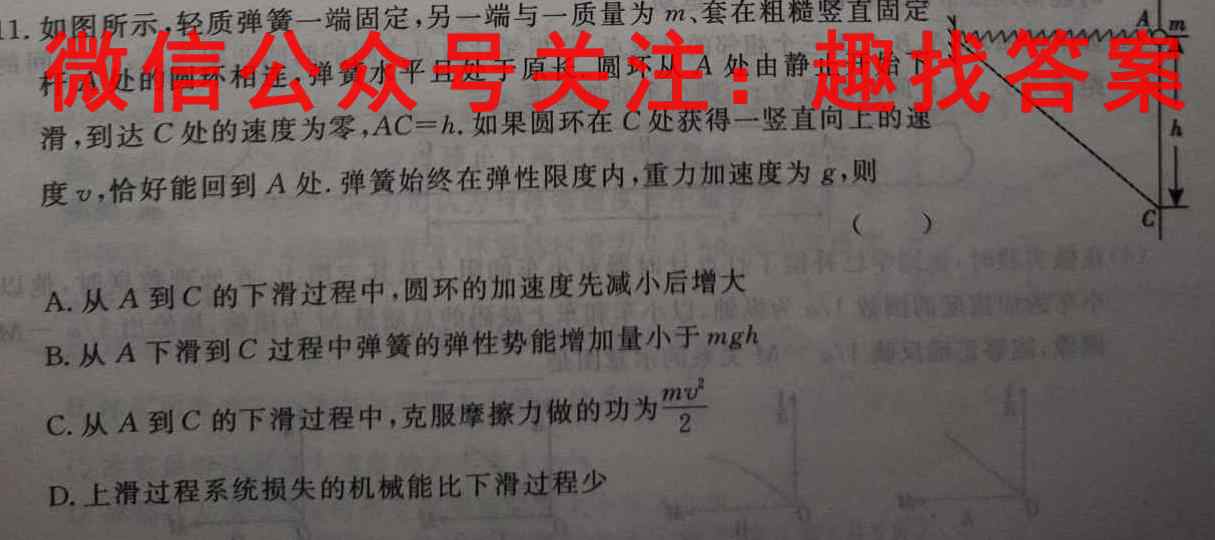 11. 如图所示,轻质弹簧一端固定,另一端与一质量为 m、套在粗糙竖直固定
杆 A 处的圆环相连,弹簧水平且处于原长.圆环从 A 处由静止开始下
微信公众号关注：趣找答案
滑,到达 C 处的速度为零,AC=h.如果圆环在 C 处获得一竖直向上的速
度 v,恰好能回到 A 处.弹簧始终在弹性限度内,重力加速度为 g,则
( )
A m
h
C
A. 从 A 到 C 的下滑过程中,圆环的加速度先减小后增大
B. 从 A 下滑到 C 过程中弹簧的弹性势能增加量小于 mgh
C. 从 A 到 C 的下滑过程中,克服摩擦力做的功为 mv²/2
D. 上滑过程系统损失的机械能比下滑过程少